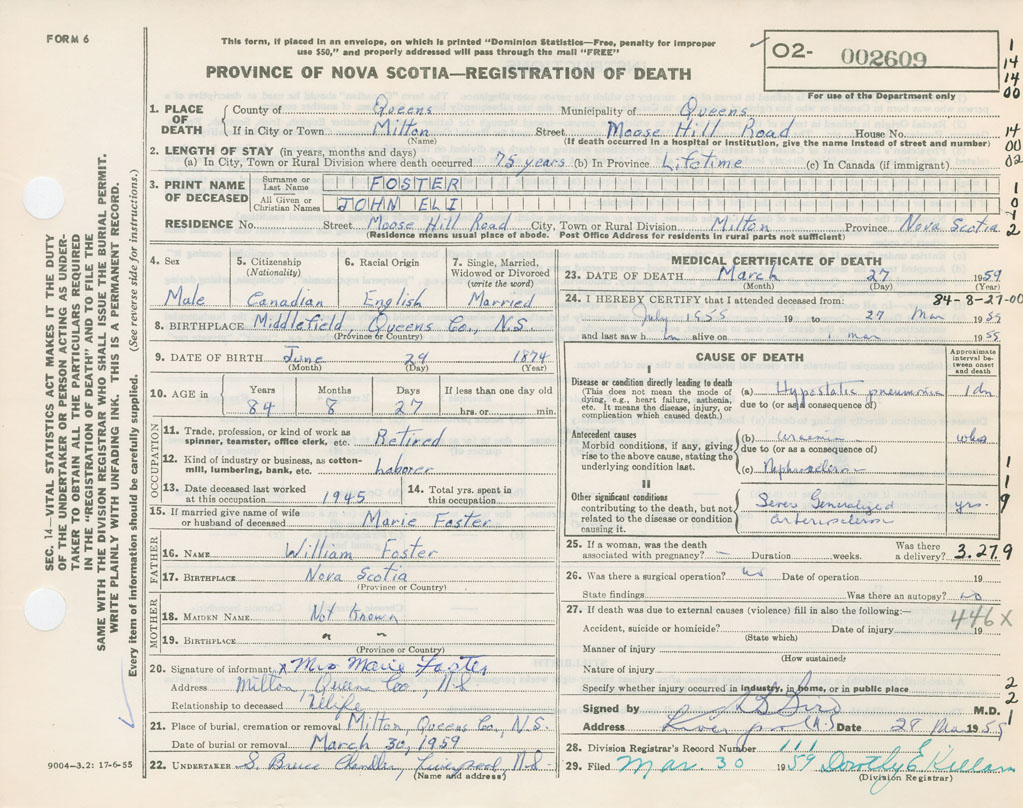 FORM 6
This form, if placed in an envelope, on which is printed "Dominion Statistics—Free, penalty for improper
use $50," and properly addressed will pass through the mail "FREE"
PROVINCE OF NOVA SCOTIA—REGISTRATION OF DEATH
02- 002609
For use of the Department only
1
14
14
00
14
00
02
1
0
1
2
1. PLACE OF DEATH
County of Queens Municipality of Queens
If in City or Town Milton Street Moose Hill Road House No.
(Name) (If death occurred in a hospital or institution, give the name instead of street and number)
2. LENGTH OF STAY (in years, months and days)
(a) In City, Town or Rural Division where death occurred 75 years (b) In Province Lifetime (c) In Canada (if immigrant)
3. PRINT NAME OF DECEASED
Surname or Last Name FOSTER
All Given or Christian Names JOHN ELI
RESIDENCE No. Street Moose Hill Road City, Town or Rural Division Milton Province Nova Scotia
(Residence means usual place of abode. Post Office Address for residents in rural parts not sufficient)
4. Sex
Male
5. Citizenship
(Nationality)
Canadian
6. Racial Origin
English
7. Single, Married,
Widowed or Divorced
(write the word)
Married
8. BIRTHPLACE Middlefield, Queens Co., N.S.
(Province or Country)
9. DATE OF BIRTH June 29 1874
(Month) (Day) (Year)
10. AGE in
Years Months Days If less than one day old
84 8 27 hrs. or min.
OCCUPATION
11. Trade, profession, or kind of work as
spinner, teamster, office clerk, etc. Retired
12. Kind of industry or business, as cotton-
mill, lumbering, bank, etc. Laborer
13. Date deceased last worked
at this occupation 1945
14. Total yrs. spent in
this occupation
15. If married give name of wife
or husband of deceased Marie Foster
FATHER
16. NAME William Foster
17. BIRTHPLACE Nova Scotia
(Province or Country)
MOTHER
18. MAIDEN NAME Not Known
19. BIRTHPLACE " "
(Province or Country)
20. Signature of informant x Mrs Marie Foster
Address Milton, Queens Co., N.S.
Relationship to deceased Wife
21. Place of burial, cremation or removal Milton, Queens Co., N.S.
Date of burial or removal March 30, 1959
22. UNDERTAKER S. Bruce Chandler, Liverpool, N.S.
(Name and address)
MEDICAL CERTIFICATE OF DEATH
23. DATE OF DEATH March 27 1959
(Month) (Day) (Year)
24. I HEREBY CERTIFY that I attended deceased from: 84-8-27-00
July 1955 19 to 27 Mar 1959
and last saw h im alive on 1 mar 1955
CAUSE OF DEATH
Approximate
interval be-
tween onset
and death
I
Disease or condition directly leading to death
(This does not mean the mode of
dying, e.g., heart failure, asthenia,
etc. It means the disease, injury, or
complication which caused death.)
(a) Hypostatic pneumonia
due to (or as a consequence of)
Antecedent causes
Morbid conditions, if any, giving
rise to the above cause, stating the
underlying condition last.
(b) uraemia
due to (or as a consequence of)
(c)
II
Other significant conditions
contributing to the death, but not
related to the disease or condition
causing it.
Severe Generalized
yrs.
1
1
9
25. If a woman, was the death
associated with pregnancy? — Duration weeks. Was there
a delivery?
3.27.9
26. Was there a surgical operation? no Date of operation 19
State findings Was there an autopsy? no
27. If death was due to external causes (violence) fill in also the following:—
446x
Accident, suicide or homicide? Date of injury 19
(State which)
Manner of injury
(How sustained)
Nature of injury
Specify whether injury occurred in industry, in home, or in public place
2
2
1
Signed by M.D.
Address Liverpool N.S. Date 28 Mar 1955
28. Division Registrar's Record Number 111
29. Filed Mar. 30 1959 Dorothy E Killam
(Division Registrar)
SEC. 14—VITAL STATISTICS ACT MAKES IT THE DUTY
OF THE UNDERTAKER OR PERSON ACTING AS UNDER-
TAKER TO OBTAIN ALL THE PARTICULARS REQUIRED
IN THE "REGISTRATION OF DEATH" AND TO FILE THE
SAME WITH THE DIVISION REGISTRAR WHO SHALL ISSUE THE BURIAL PERMIT.
WRITE PLAINLY WITH UNFADING INK. THIS IS A PERMANENT RECORD.
Every item of information should be carefully supplied. (See reverse side for instructions.)
9004-3.2: 17-6-55